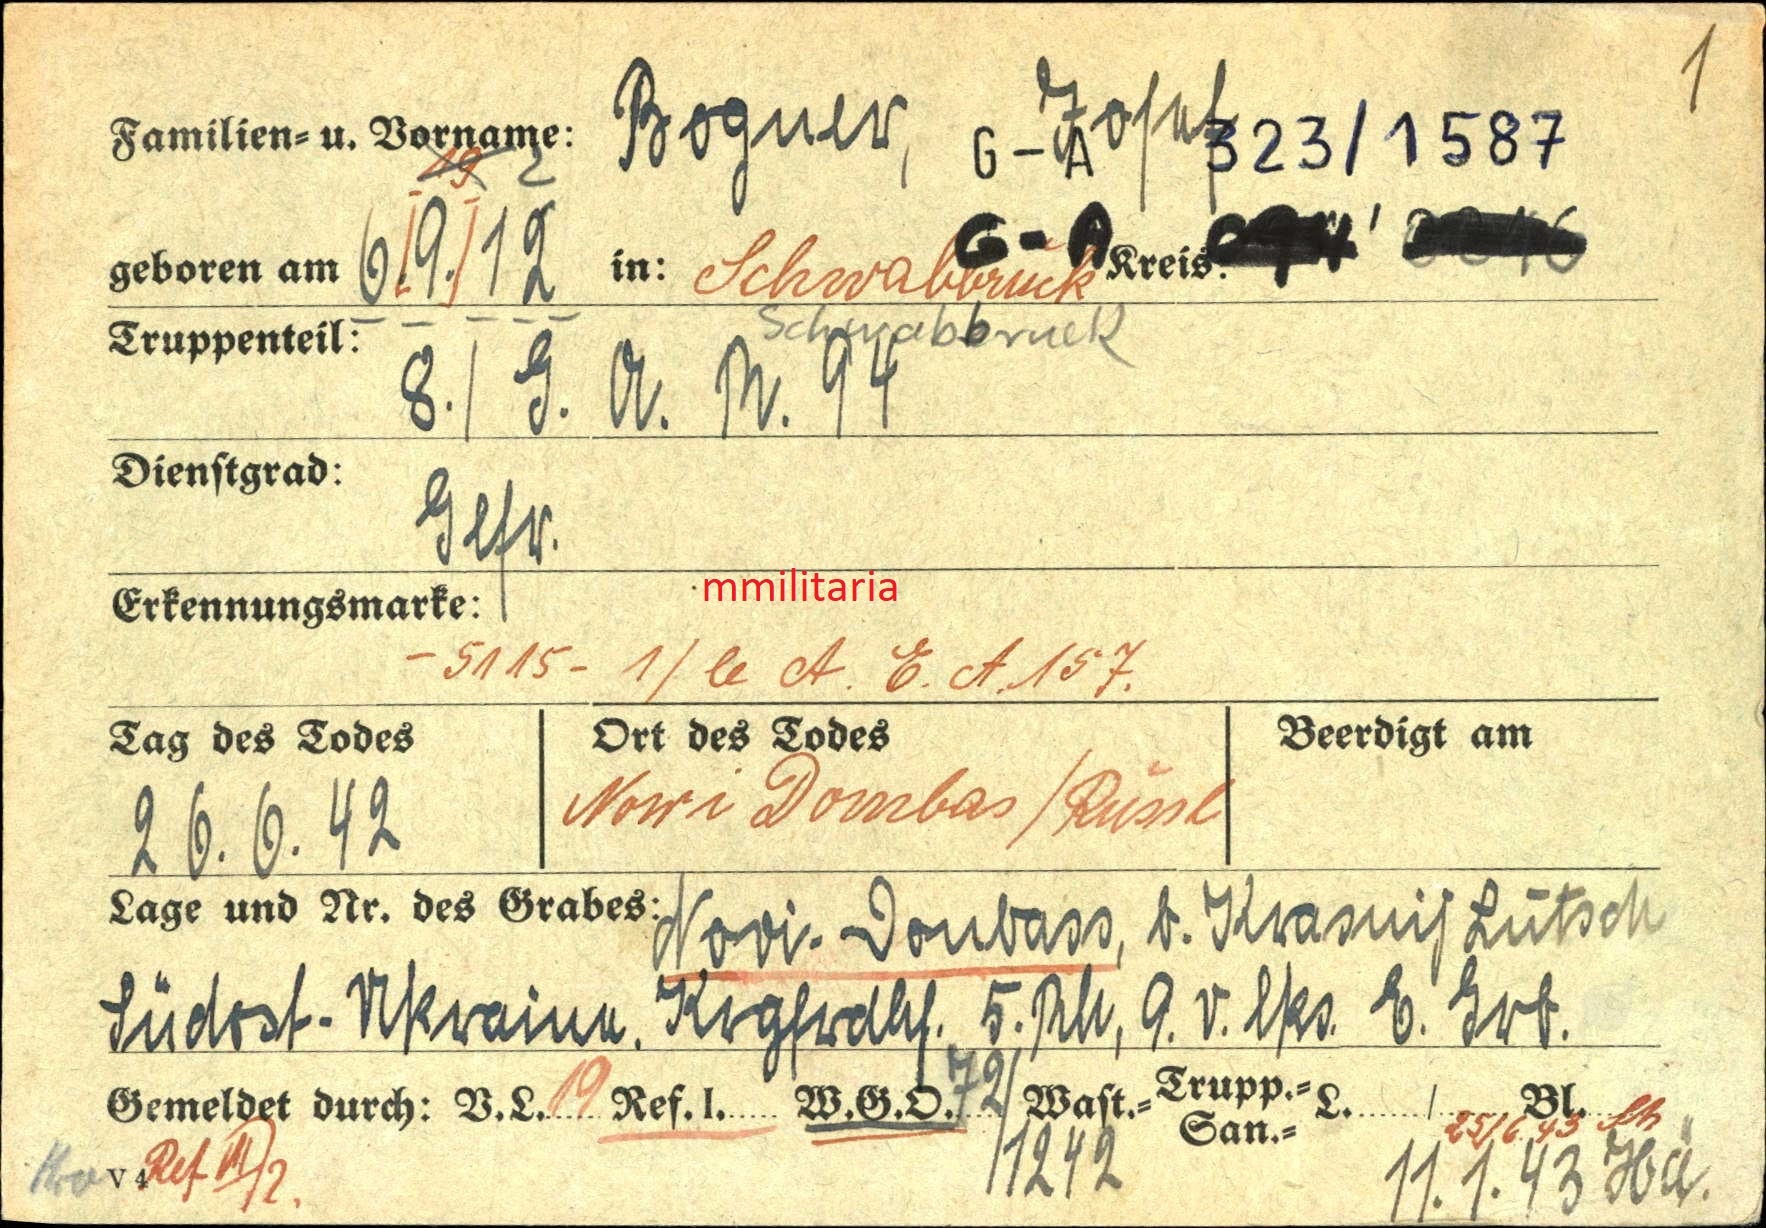 1
Familien- u. Vorname: Bogner, Josef
G-A 323/1587
19 2
geboren am 6.9.12 in: Schwabbruck Kreis:
Schwabbruck
Truppenteil: 8./ G. A. R. 94
Dienstgrad: Gefr.
mmilitaria
Erkennungsmarke:
-5115- 1/ le A. E. A. 157.
Tag des Todes Ort des Todes Beerdigt am
26.6.42 Nowi Dombas / Russl
Lage und Nr. des Grabes: Novi-Donbass, b. Krasnij Lutsch
Südost-Ukraine. Krgfrdhf. 5. Rh, 9. v. lks. E. Grb.
Gemeldet durch: V.L. 19 Ref. I. W.G.O. 72/1242 Wast.- Trupp.- San.- L. / Bl.
25/6.43 Sch
V 4 Ref VI/2. 11.1.43 Hä.